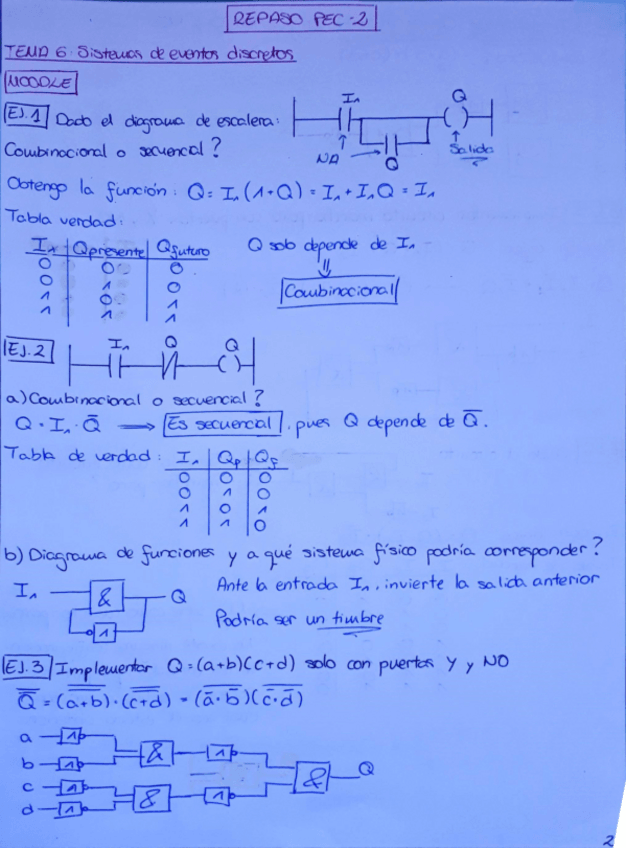 REPASO PEC-2
TEMA 6. Sistemas de eventos discretos
MOODLE
EJ.1 Dado el diagrama de escalera:
I₁ Q
Combinacional o secuencial?
NA Q Salida
Obtengo la función: Q = I₁(1+Q) = I₁ + I₁Q = I₁
Tabla verdad:
I₁ Qpresente Qfuturo
0 0 0
0 1 0
1 0 1
1 1 1
Q solo depende de I₁
⇓
Combinacional
EJ.2 I₁ Q Q
a) Combinacional o secuencial?
Q = I₁ · Q̅ → Es secuencial, pues Q depende de Q̅.
Tabla de verdad: I₁ Qp Qf
0 0 0
0 1 0
1 0 1
1 1 0
b) Diagrama de funciones y a qué sistema físico podría corresponder?
I₁ & Q
1
Ante la entrada I₁, invierte la salida anterior
Podría ser un timbre
EJ.3 Implementar Q=(a+b)(c+d) solo con puertas Y y NO
Q̿ = (a+b)̿ · (c+d)̿ = (a̅ · b̅)̅ (c̅ · d̅)̅
a 1
b 1 & 1
c 1 & Q
d 1 & 1
2